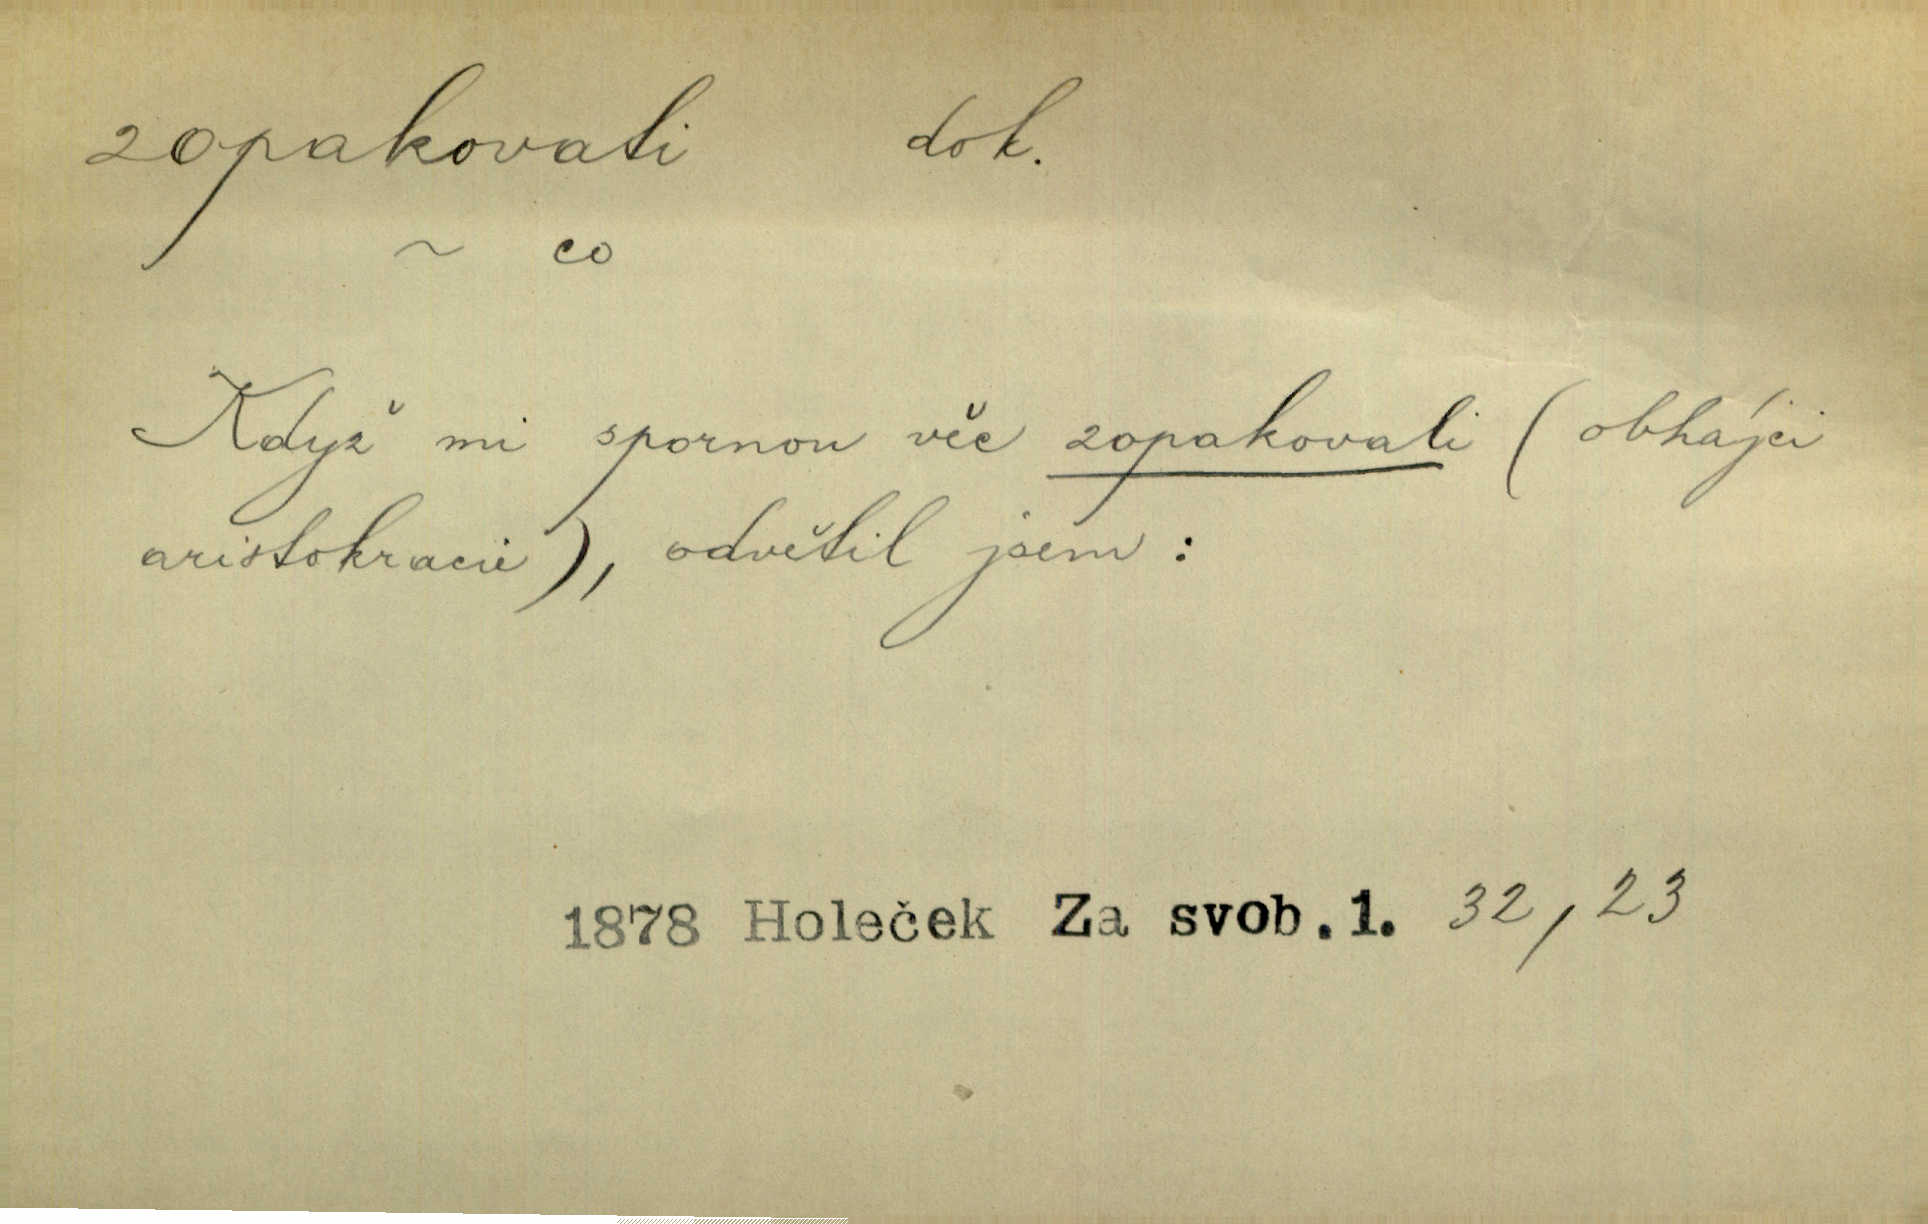 zopakovati dok.
~ co
Když mi spornou věc zopakovali (obhájci
aristokracie), odvětil jsem:
1878 Holeček Za svob.1. 32,23